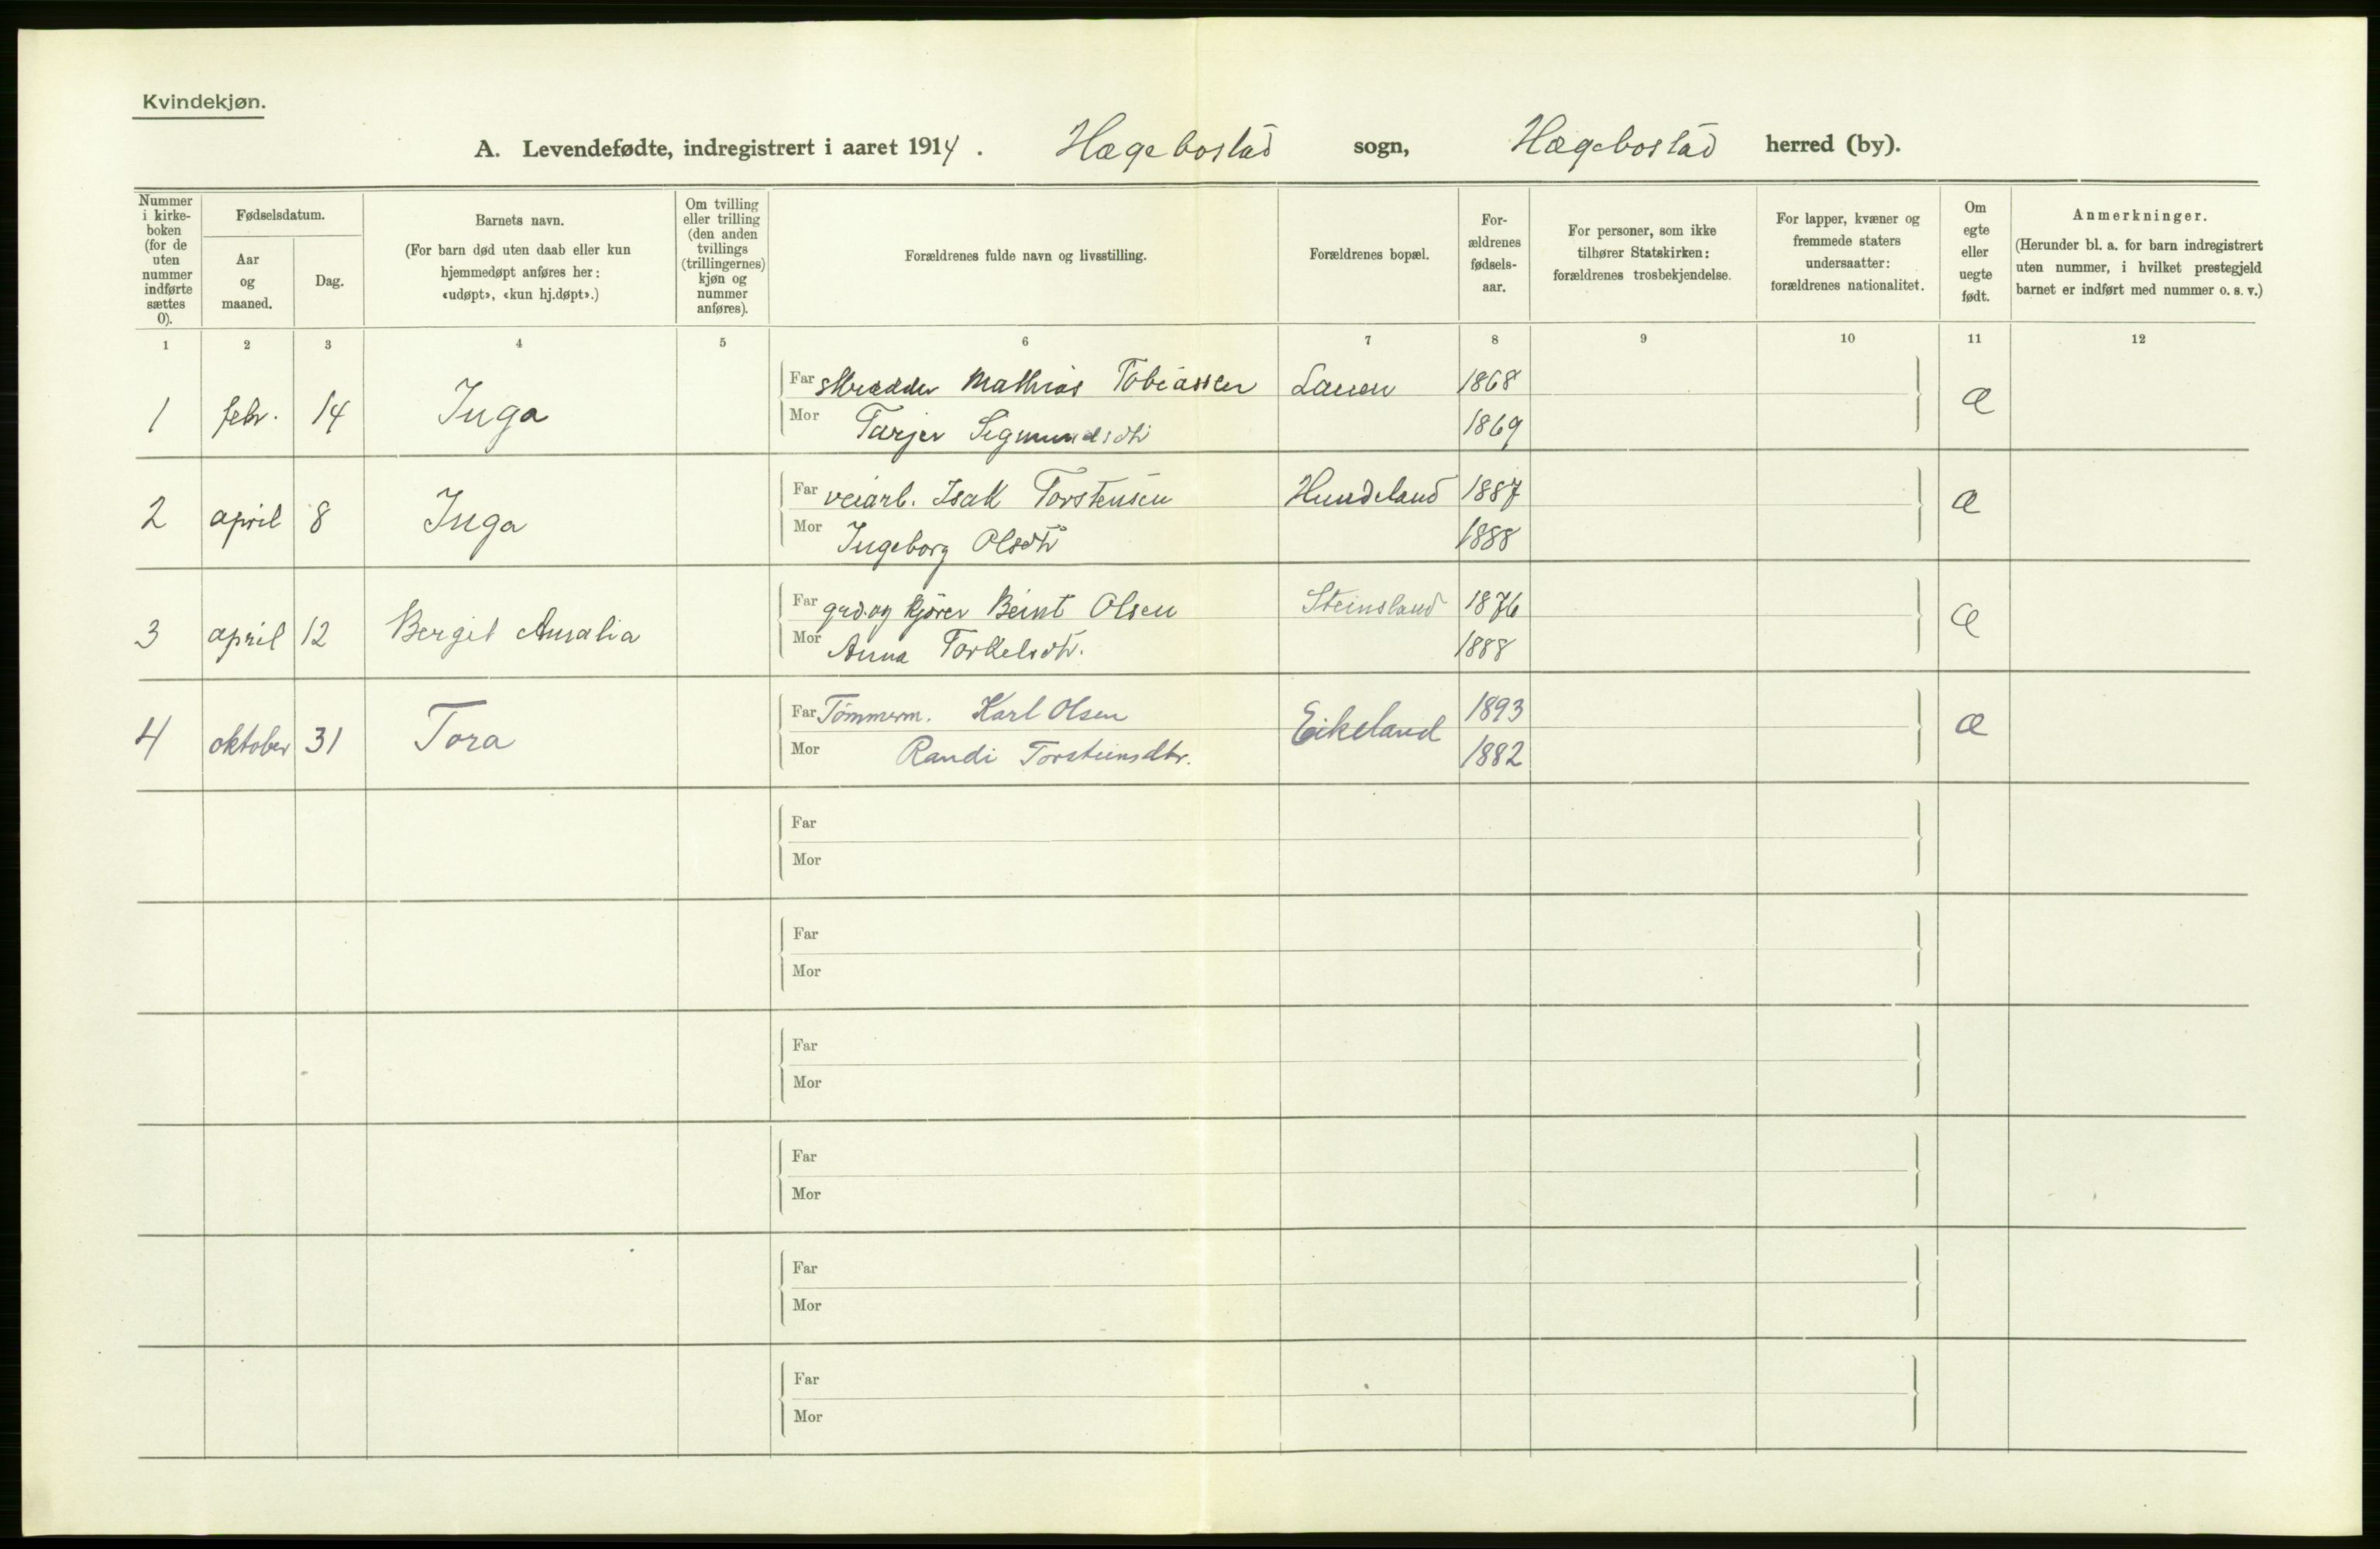 Kvindekjøn.
A. Levendefødte, indregistrert i aaret 1914. Hægebostad sogn, Hægebostad herred (by).
Nummer i kirkeboken (for de uten nummer indførte sættes 0).
Fødselsdatum.
Aar og maaned.
Dag.
Barnets navn.
(For barn død uten daab eller kun hjemmedøpt anføres her: «udøpt», «kun hj.døpt».)
Om tvilling eller trilling (den anden tvillings (trillingernes) kjøn og nummer anføres).
Forældrenes fulde navn og livsstilling.
Forældrenes bopæl.
Forældrenes fødselsaar.
For personer, som ikke tilhører Statskirken: forældrenes trosbekjendelse.
For lapper, kvæner og fremmede staters undersaatter: forældrenes nationalitet.
Om egte eller uegte født.
Anmerkninger.
(Herunder bl. a. for barn indregistrert uten nummer, i hvilket prestegjeld barnet er indført med nummer o. s. v.)
1 2 3 4 5 6 7 8 9 10 11 12
1 febr. 14 Inga Far skrædder Mathias Tobiassen Lauen 1868 æ
Mor Tarjer Sigmundsdtr 1869
2 april 8 Inga Far veiarb. Isak Torstensen Hundeland 1887 æ
Mor Ingeborg Olsdtr 1888
3 april 12 Bergit Amalia Far grd.og kjører Beint Olsen Steinsland 1876 æ
Mor Anna Torkelsdtr. 1888
4 oktober 31 Tora Far Tömmerm. Karl Olsen Eikeland 1893 æ
Mor Randi Torsteinsdtr. 1882
Far
Mor
Far
Mor
Far
Mor
Far
Mor
Far
Mor
Far
Mor